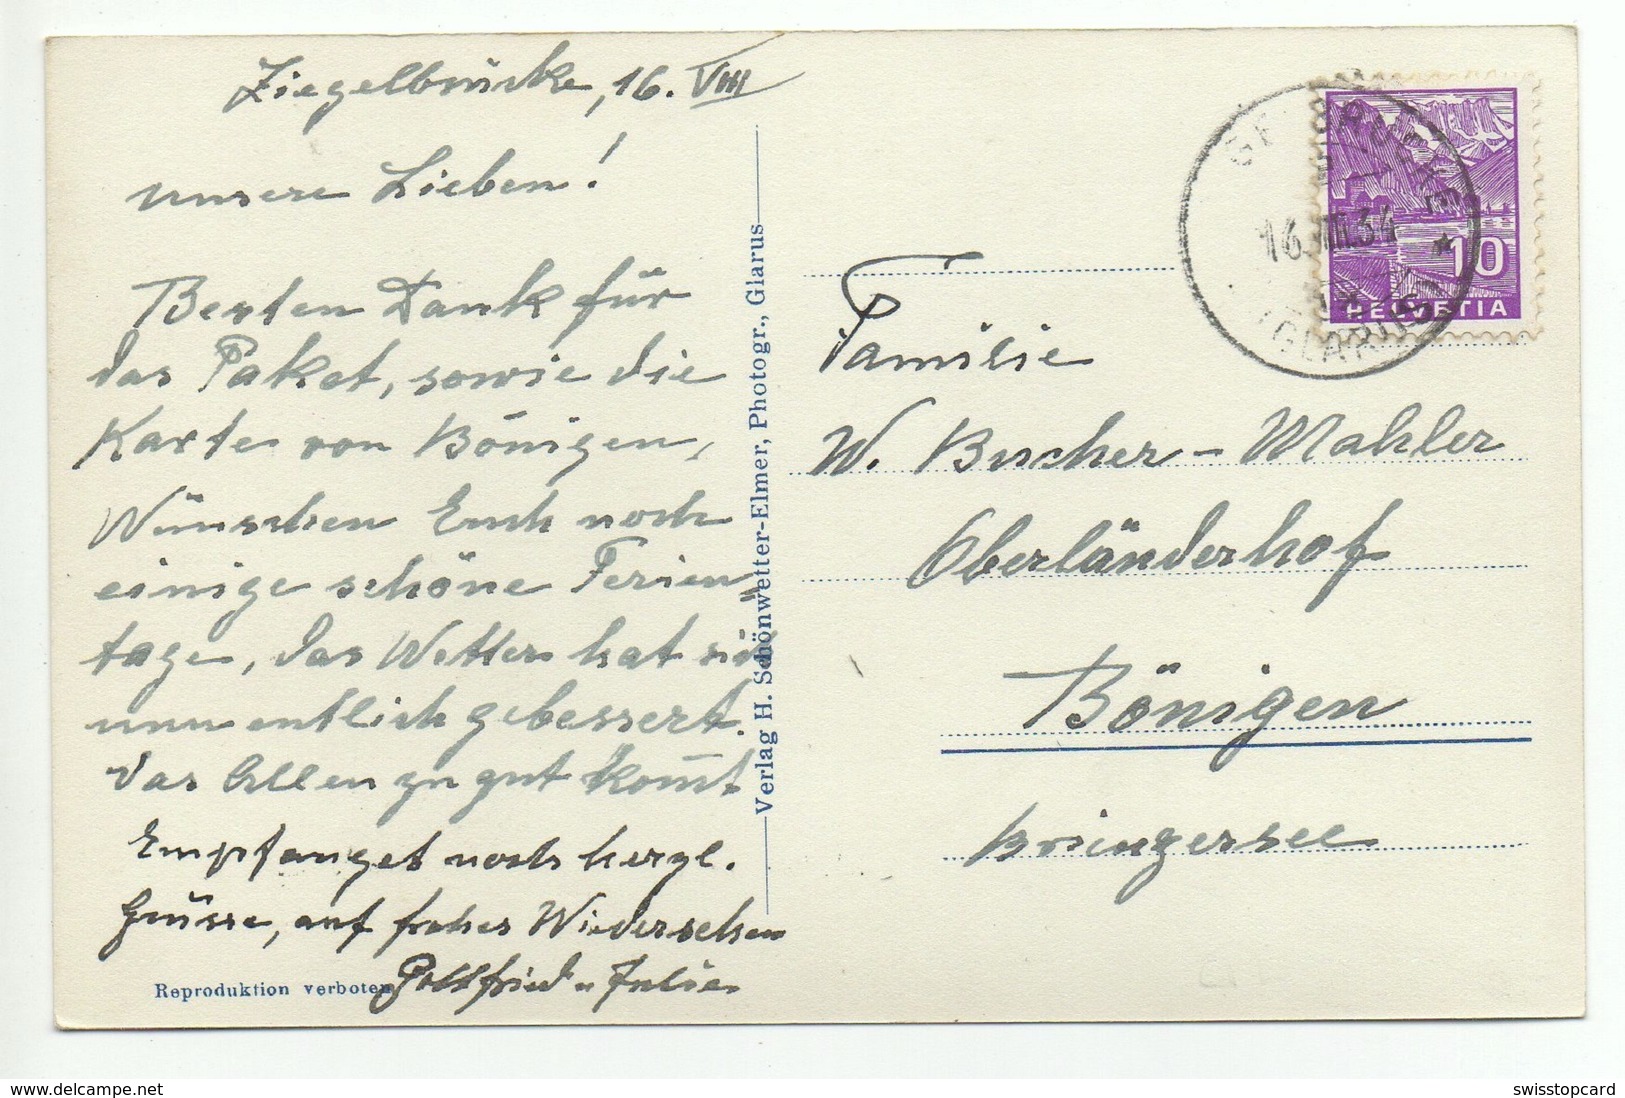 Ziegelbrücke, 16. VIII
unsere Lieben!
Besten Dank für
das Paket, sowie die
Karte von Bönigen,
Wünschen Euch noch
einige schöne Ferien=
tage, das Wetter hat sich
nun entlich gebessert.
das Allen zu gut kom̄t
Empfanget noch herzl.
Grüsse, auf frohes Wiedersehen
Gottfried u Julie
Reproduktion verboten
Verlag H. Schönwetter-Elmer, Photogr., Glarus
16.VIII.34
(GLARUS)
10
HELVETIA
Familie
W. Bucher-Mahler
Oberländerhof
Bönigen
brienzersee
www.delcampe.net
swisstopcard